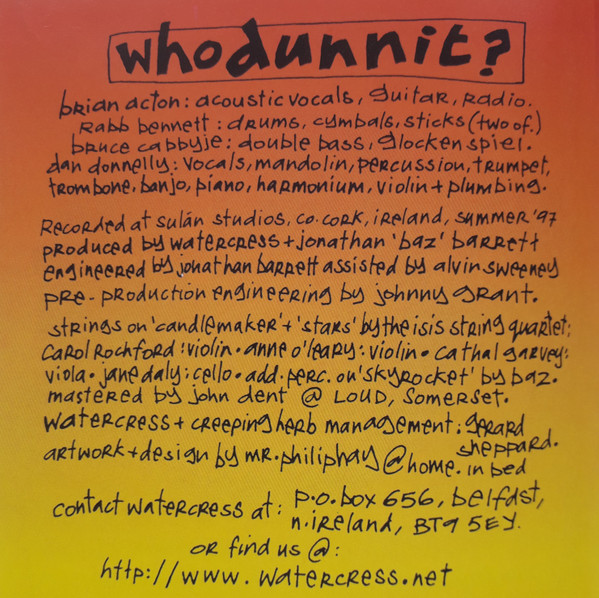 whodunnit?
brian acton: acoustic vocals, guitar, radio.
Rabb bennett: drums, cymbals, sticks (two of.)
bruce cabbyje: double bass, glockenspiel.
dan donnelly: vocals, mandolin, percussion, trumpet,
trombone, banjo, piano, harmonium, violin + plumbing.
Recorded at sulán studios, co. cork, ireland, summer '97
produced by watercress + jonathan 'baz' barrett
engineered by jonathan barrett assisted by alvin sweeney
pre-production engineering by johnny grant.
strings on 'candlemaker' + 'stars' by the isis string quartet:
Carol Rochford: violin • anne o'leary: violin • cathal garvey:
viola • jane daly: cello • add. perc. on 'skyrocket' by baz.
mastered by john dent @ LOUD, Somerset.
watercress + creeping herb management: gerard
sheppard.
artwork + design by mr. philiphay @ home. in bed
contact watercress at: p.o. box 656, belfast,
n. ireland, BT9 5EY.
or find us @:
http://www.watercress.net